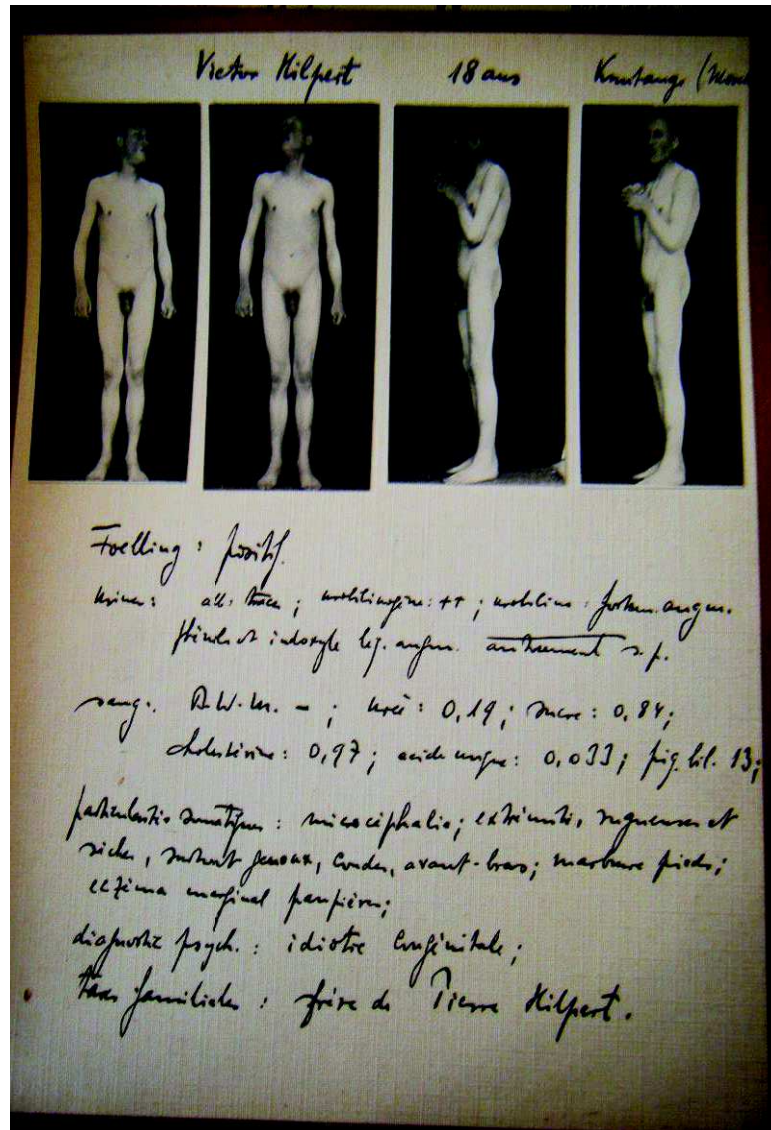 Victor Hilpert 18 ans Knutange (Mose
Foelling : positif.
urines : alb. traces ; urobilinogène : ++ ; urobiline : fortem. augm.
phénols et indoxyle lég. augm. autrement s. p.
sang : B.W.M. – ; urée : 0,19 ; sucre : 0,84 ;
cholestérine : 0,97 ; acide urique : 0,033 ; pig. bil. 13 ;
particularités somatiques : microcéphalie ; extrémités rugueuses et
sèches, surtout genoux, coudes, avant-bras ; marbrure pieds ;
eczéma marginal paupières ;
diagnostic psych. : idiotie congénitale ;
tares familiales : frère de Pierre Hilpert.